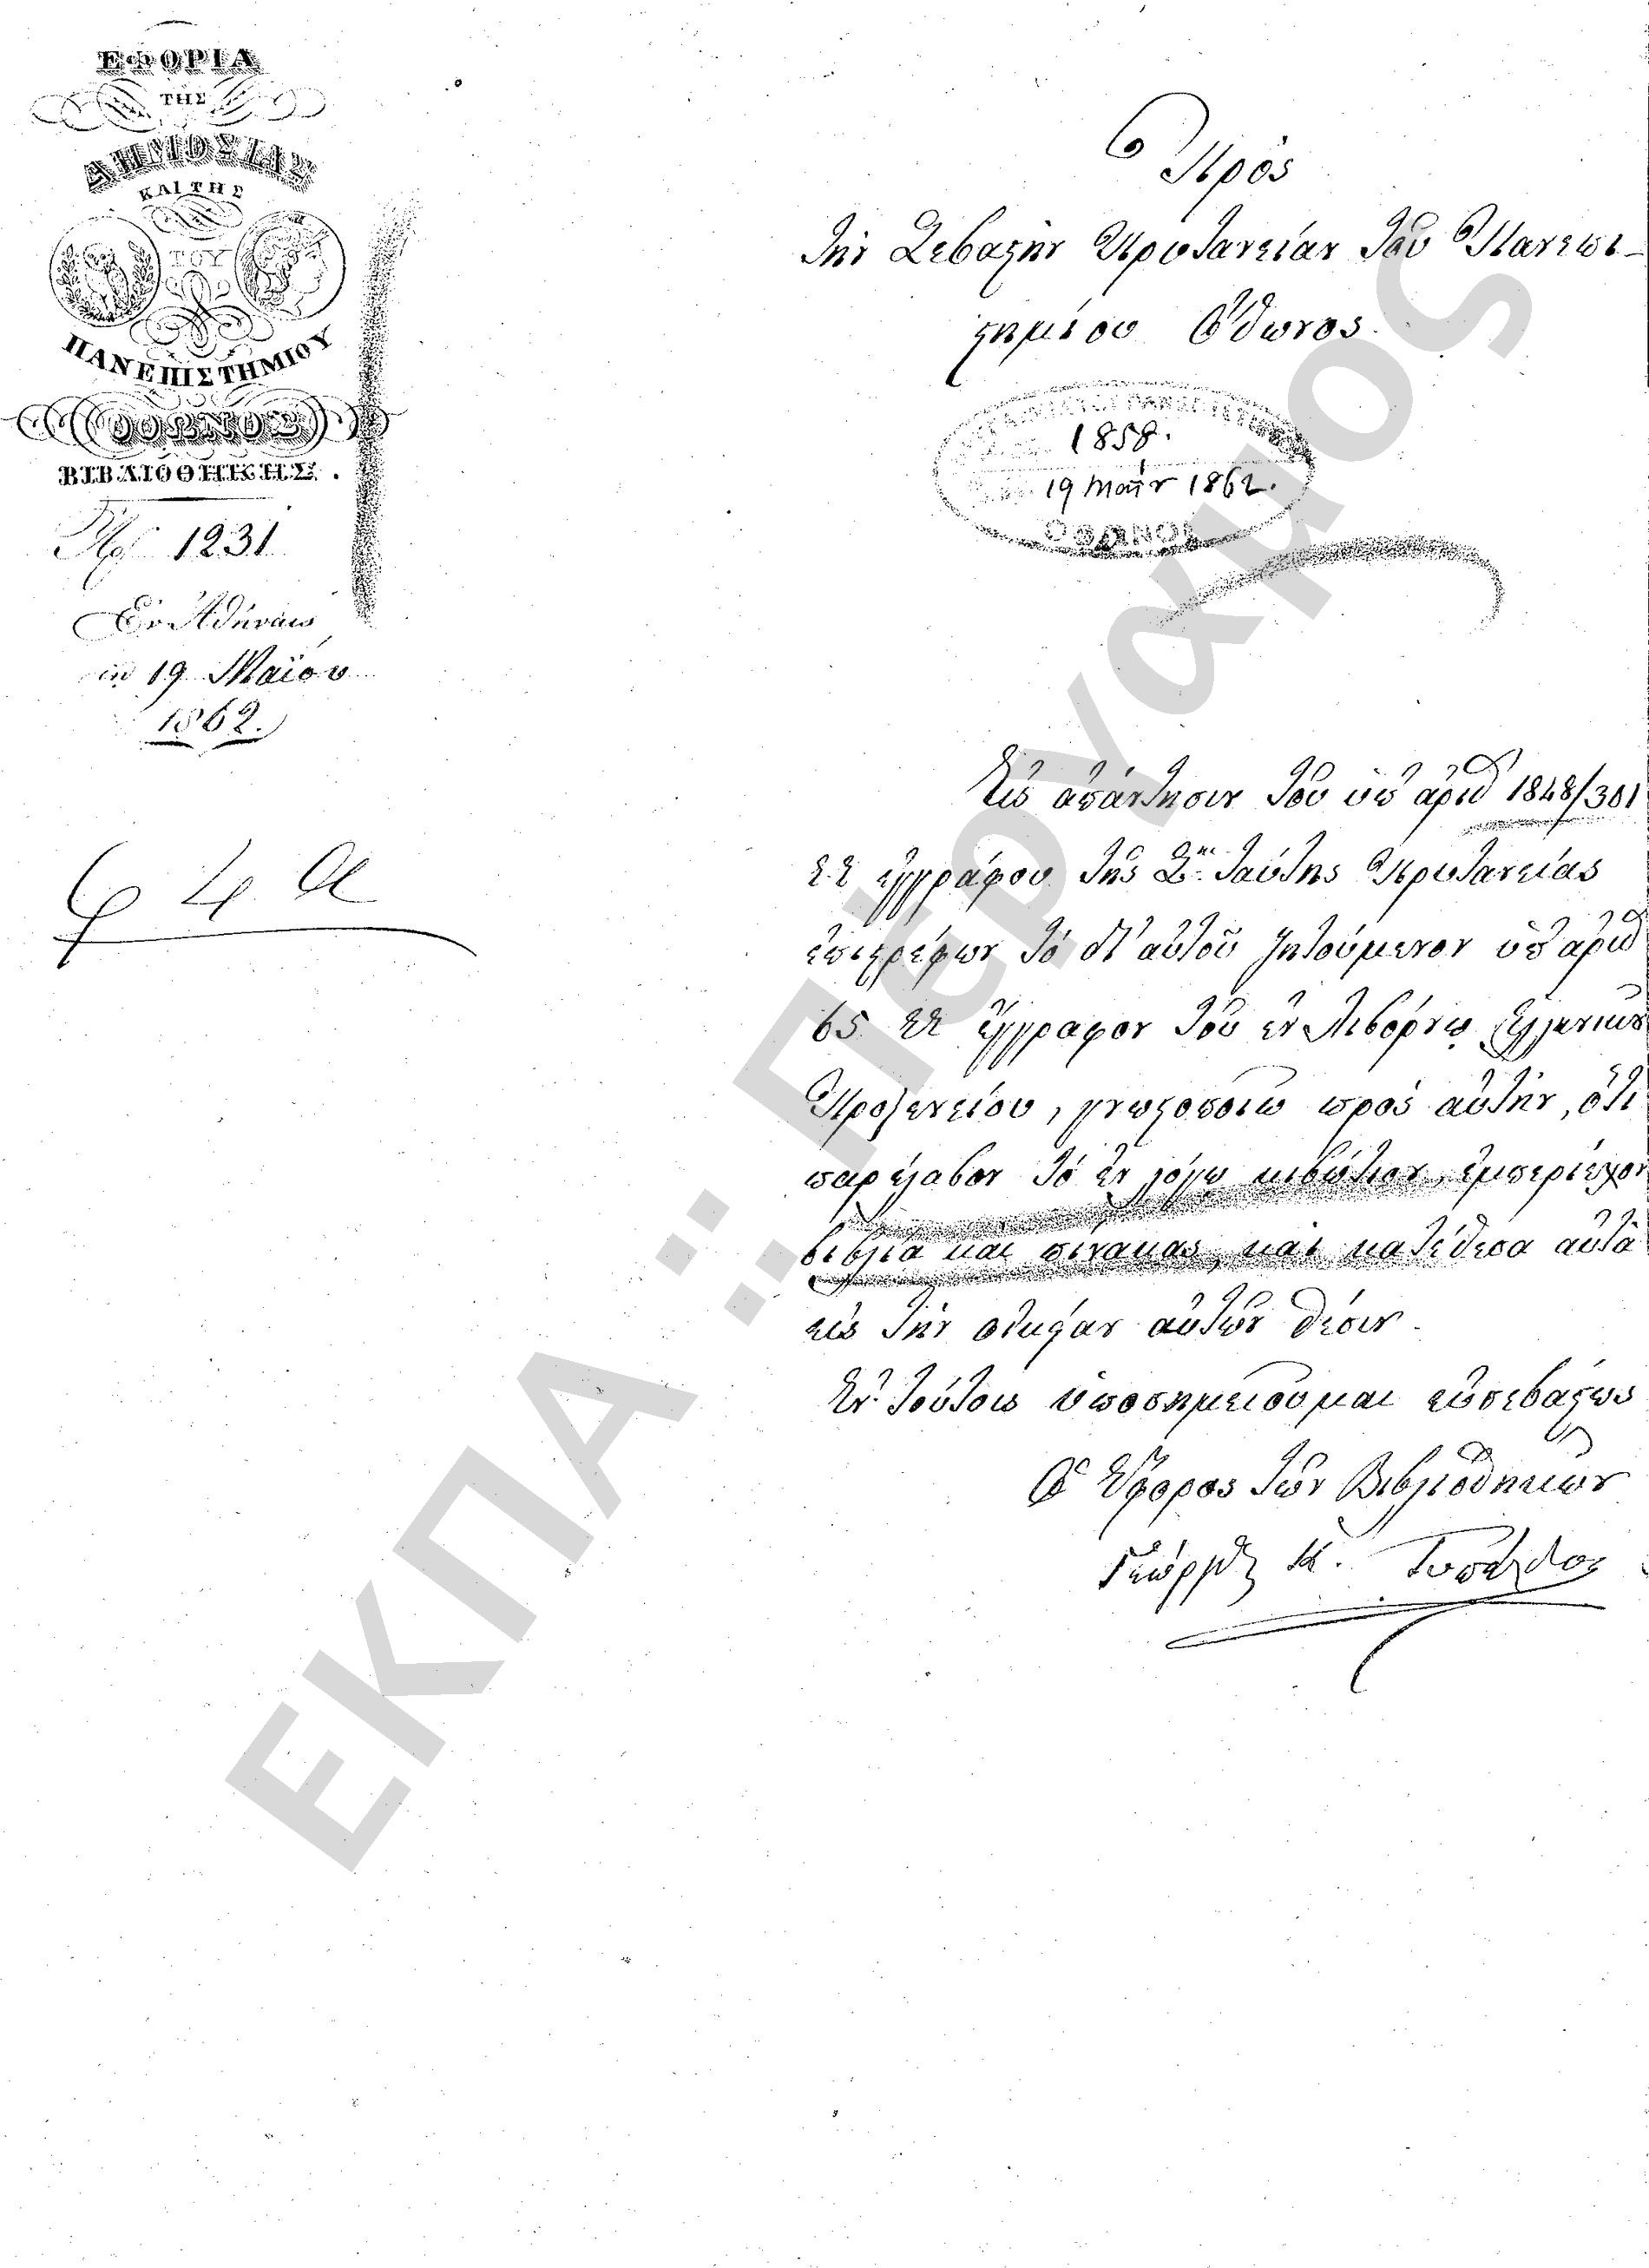 ΕΦΟΡΙΑ
ΤΗΣ
ΔΗΜΟΣΙΑΣ
ΚΑΙ ΤΗΣ
ΤΟΥ
ΠΑΝΕΠΙΣΤΗΜΙΟΥ
ΟΘΩΝΟΣ
ΒΙΒΛΙΟΘΗΚΗΣ.
1231
Ἐν Ἀθήναις
τῇ 19 Μαΐου
1862.
φ 4 α
Πρὸς
Τὴν Σεβαστὴν Πρυτανείαν τοῦ Πανεπι-
στημίου Ὄθωνος.
1858.
19 Μαΐου 1862.
ΟΘΩΝΟΣ
Εἰς ἀπάντησιν τοῦ ὑπ' ἀριθ 1848/301
ε.ε ἐγγράφου τῆς Σ.ης ταύτης Πρυτανείας
ἐπιστρέφων τὸ δι' αὐτοῦ ζητούμενον ὑπ' ἀριθ
65 ε.ε ἔγγραφον τοῦ ἐν Λιβόρνῳ Ἑλληνικοῦ
Προξενείου, γνωστοποιῶ πρὸς αὐτὴν, ὅτι
παρέλαβον τὸ ἐν λόγῳ κιβώτιον, ἐμπεριέχον
βιβλία καὶ πίνακας, καὶ κατέθεσα αὐτὰ
εἰς τὴν οἰκείαν αὐτῶν θέσιν.
Ἐν τούτοις ὑποσημειοῦμαι εὐσεβάστως
Ὁ Ἔφορος τῶν Βιβλιοθηκῶν
Γεώργιος Κ. Τυπάλδος
ΕΚΠΑ :: Πέργαμος